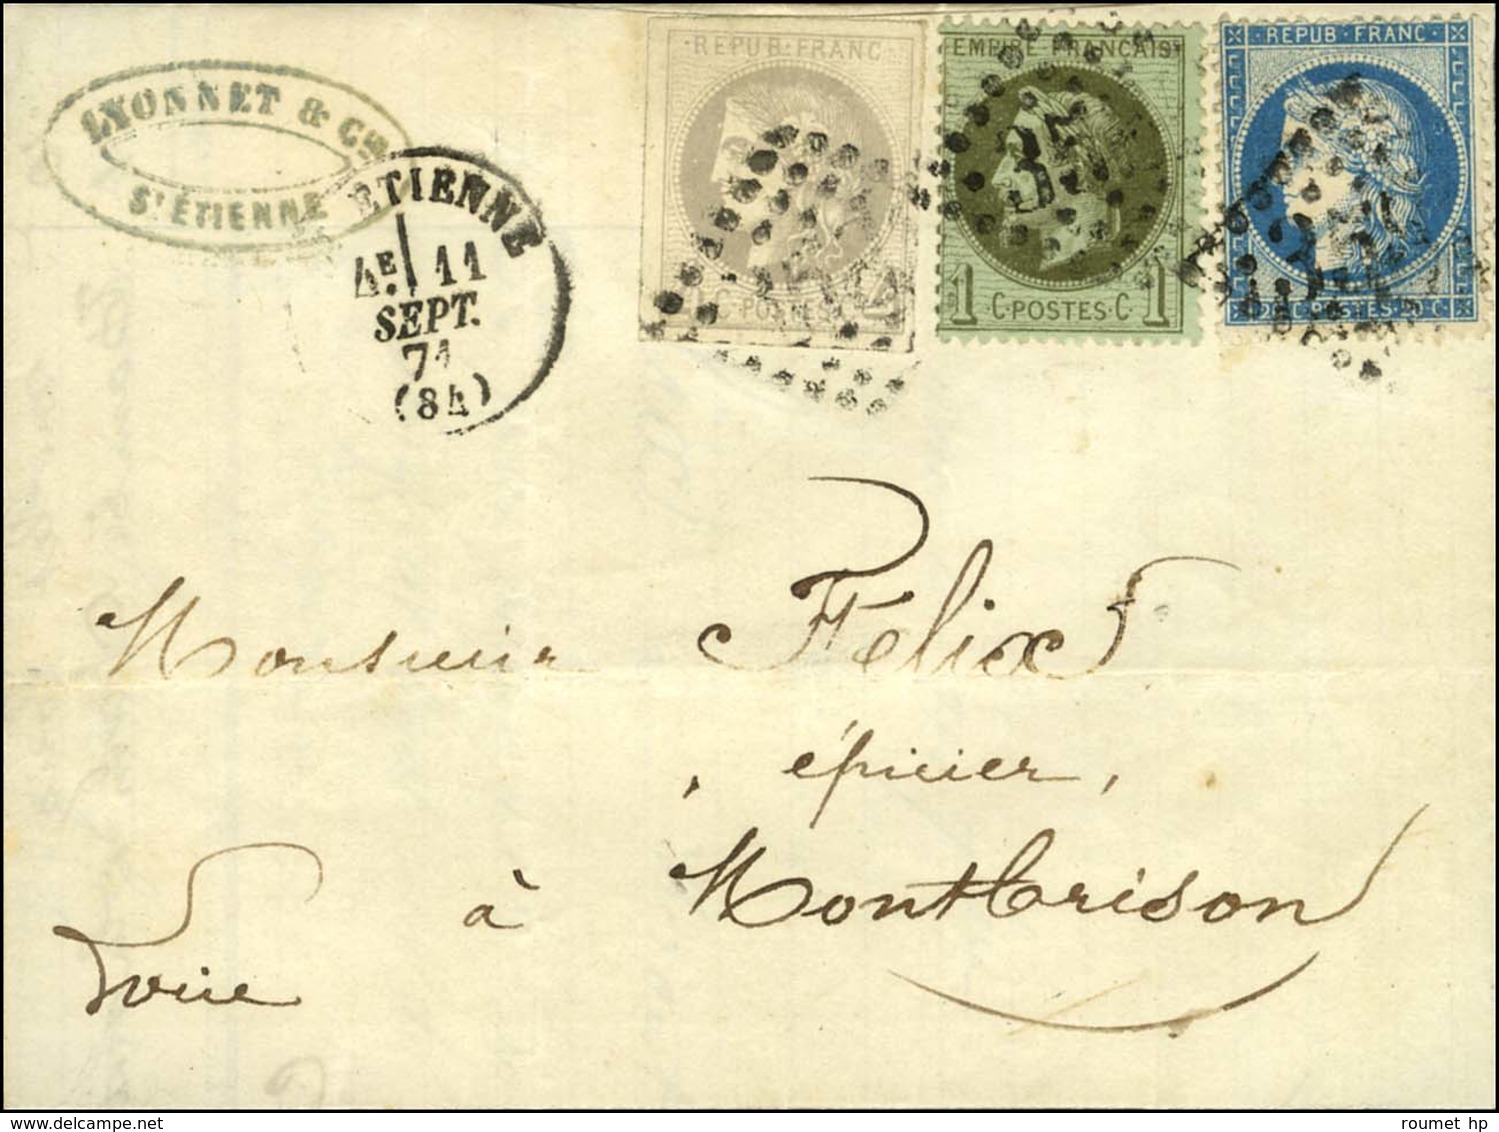 LYONNET & Cie
St ETIENNE
ETIENNE
4E 11
SEPT.
71
(84)
REPUB·FRANC
C·POSTES
EMPIRE FRANÇAIS
1 C·POSTES·C 1
REPUB·FRANC
20 C·POSTES·20 C
Monsieur Félix
épicier,
à Montbrison
Loire
roumet hp